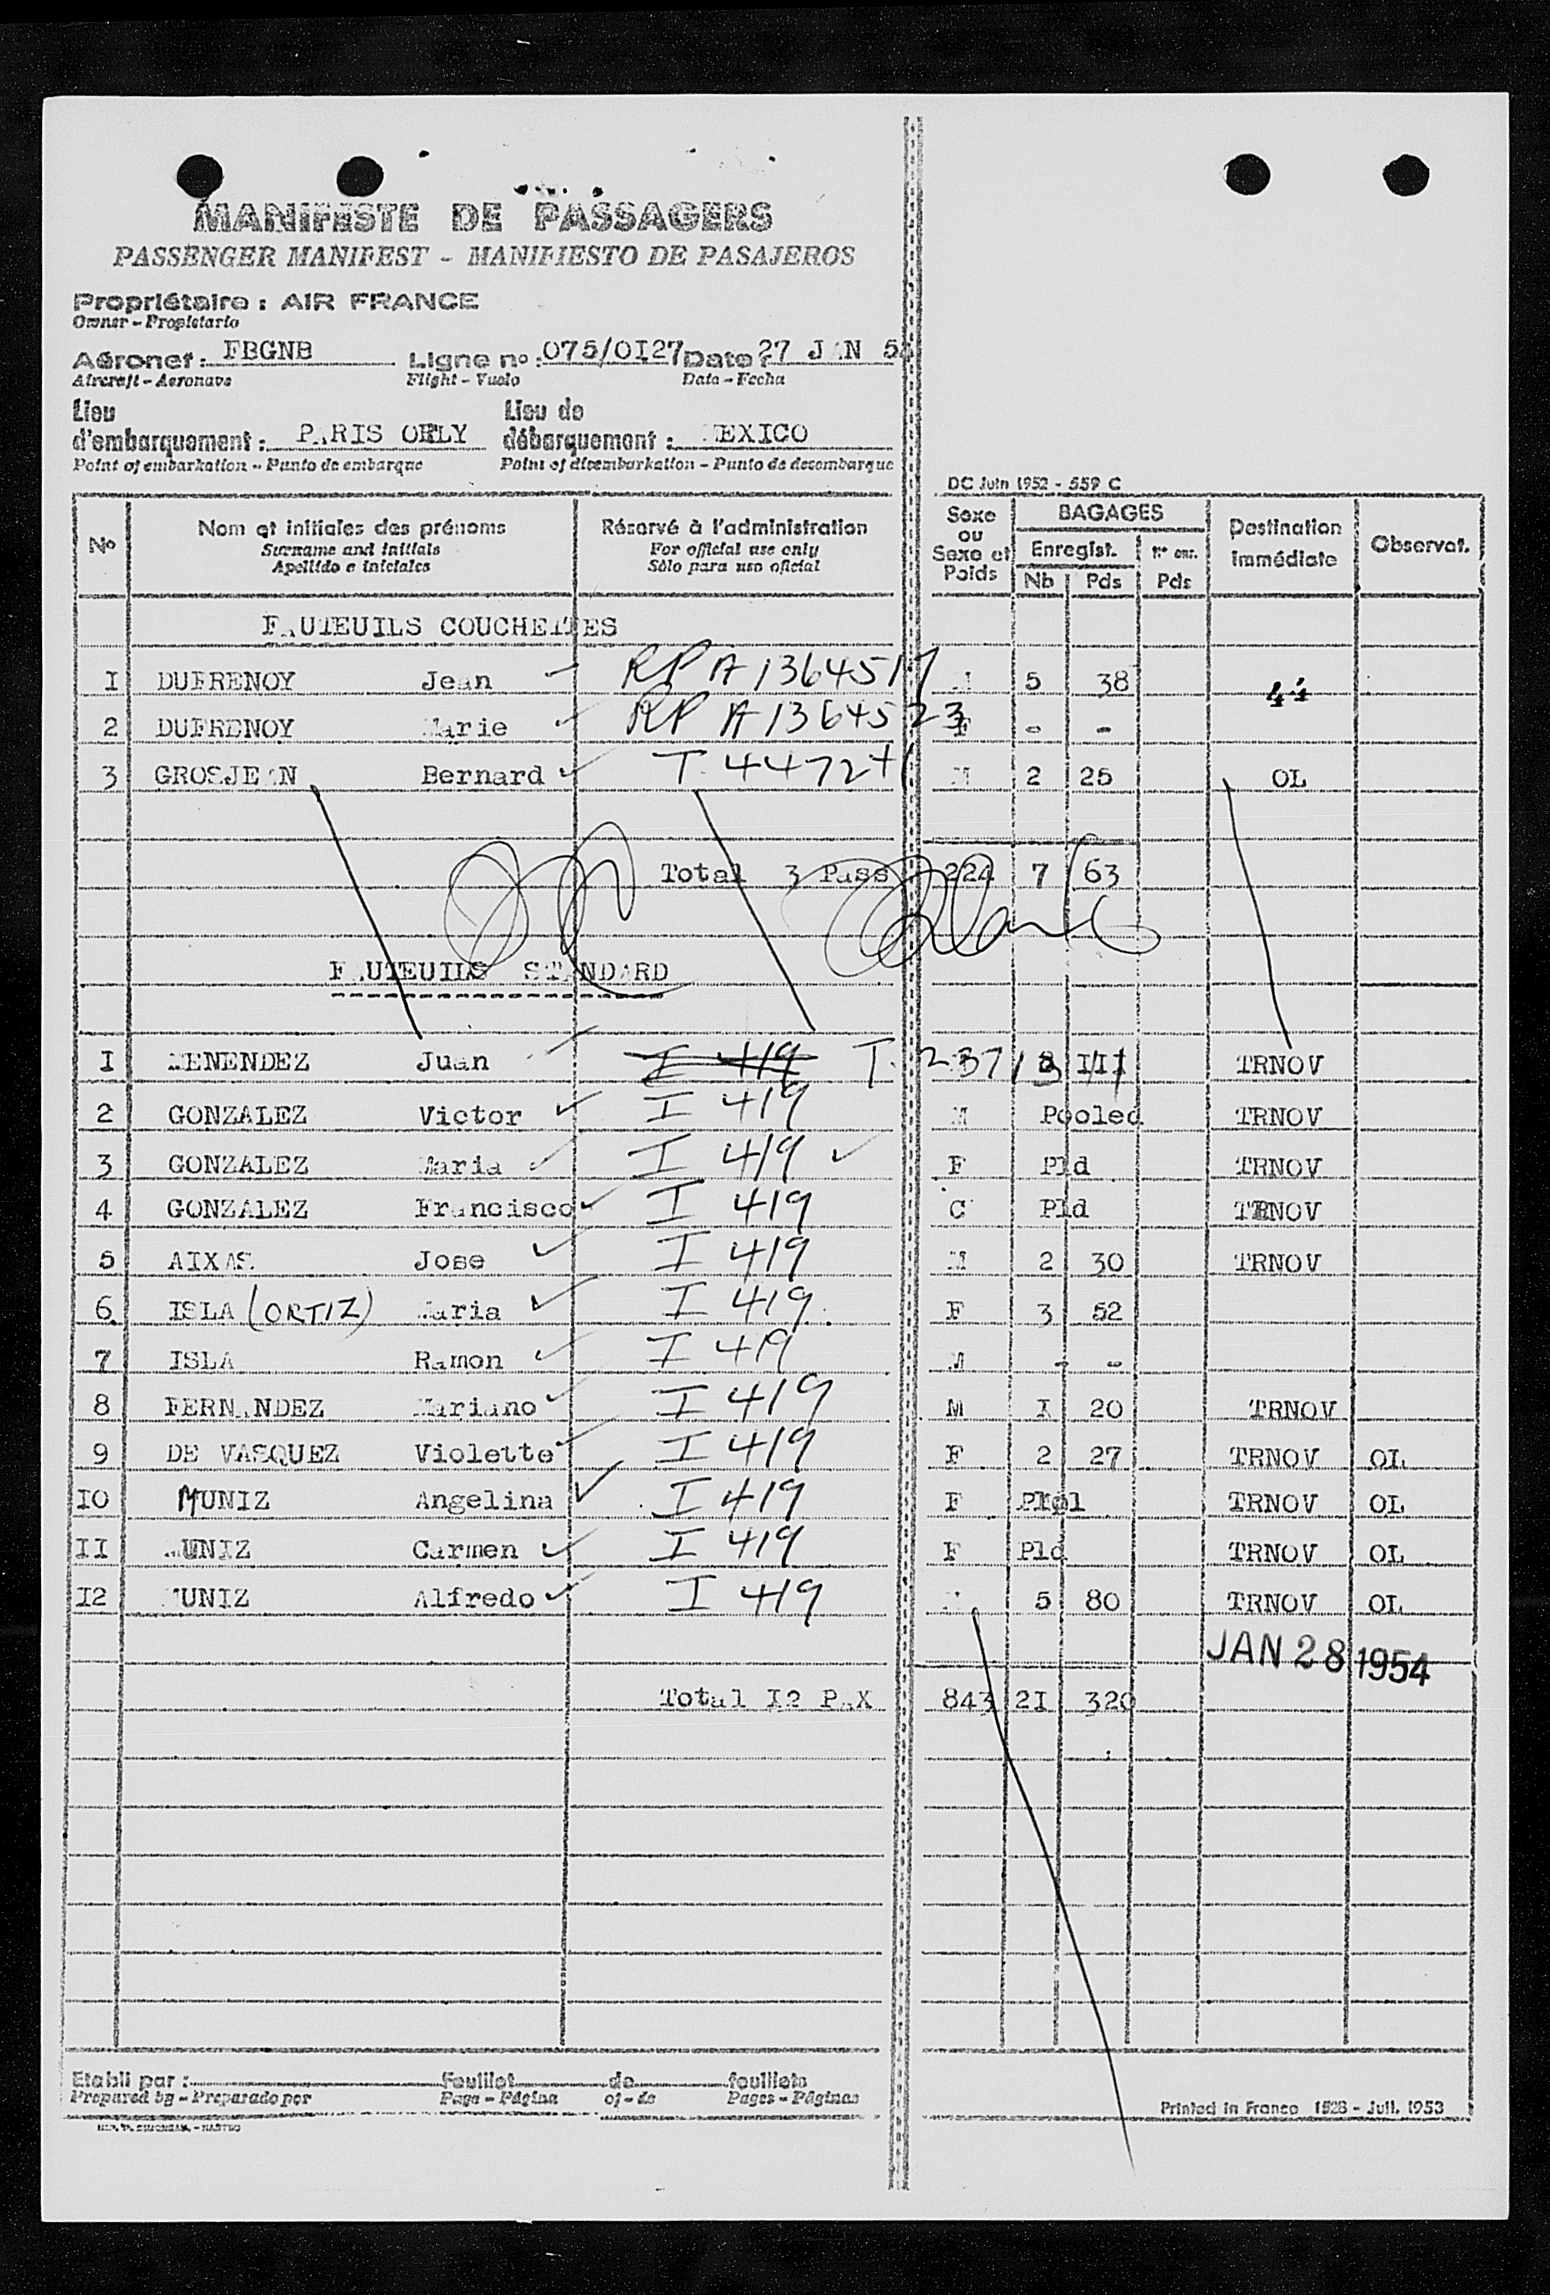 MANIFESTE DE PASSAGERS
PASSENGER MANIFEST - MANIFIESTO DE PASAJEROS
Propriétaire : AIR FRANCE
Owner - Propietario
Aéronef : FBGNB Ligne no : 075/OI27 Date : 27 JAN 54
Aircraft - Aeronave Flight - Vuelo Date - Fecha
Lieu d'embarquement : PARIS ORLY Lieu de débarquement : MEXICO
Point of embarkation - Punto de embarque Point of disembarkation - Punto de desembarque
DC Juin 1952 - 559 C
No Nom et initiales des prénoms Réservé à l'administration Sexe ou Sexe et Poids BAGAGES Destination immédiate Observat.
Surname and initials For official use only Enregist. Nr enr.
Apellido e iniciales Sólo para uso oficial Nb Pds Pds
FAUTEUILS COUCHETTES
I DUFRENOY Jean RP A 1364517 M 5 38
2 DUFRENOY Marie RP A 1364523 F - -
3 GROSJEAN Bernard T. 4472+1 M 2 25 OL
Total 3 Pass 224 7 63
FAUTEUILS STANDARD
I MENENDEZ Juan I 419 T. 23713 III TRNOV
2 GONZALEZ Victor I 419 M Pooled TRNOV
3 GONZALEZ Maria I 419 F Pld TRNOV
4 GONZALEZ Francisco I 419 C Pld TRNOV
5 AIXAS Jose I 419 M 2 30 TRNOV
6 ISLA (ORTIZ) Maria I 419 F 3 52
7 ISLA Ramon I 419 M - -
8 FERNANDEZ Mariano I 419 M I 20 TRNOV
9 DE VASQUEZ Violette I 419 F 2 27 TRNOV OL
IO MUNIZ Angelina I 419 F TRNOV OL
II MUNIZ Carmen I 419 F Pld TRNOV OL
I2 MUNIZ Alfredo I 419 M 5 80 TRNOV OL
JAN 28 1954
Total I2 PAX 843 2I 320
Etabli par : Feuillet de feuillets
Prepared by - Preparado por Page - Página of - de Pages - Páginas
Printed in France 1528 - Juil. 1953